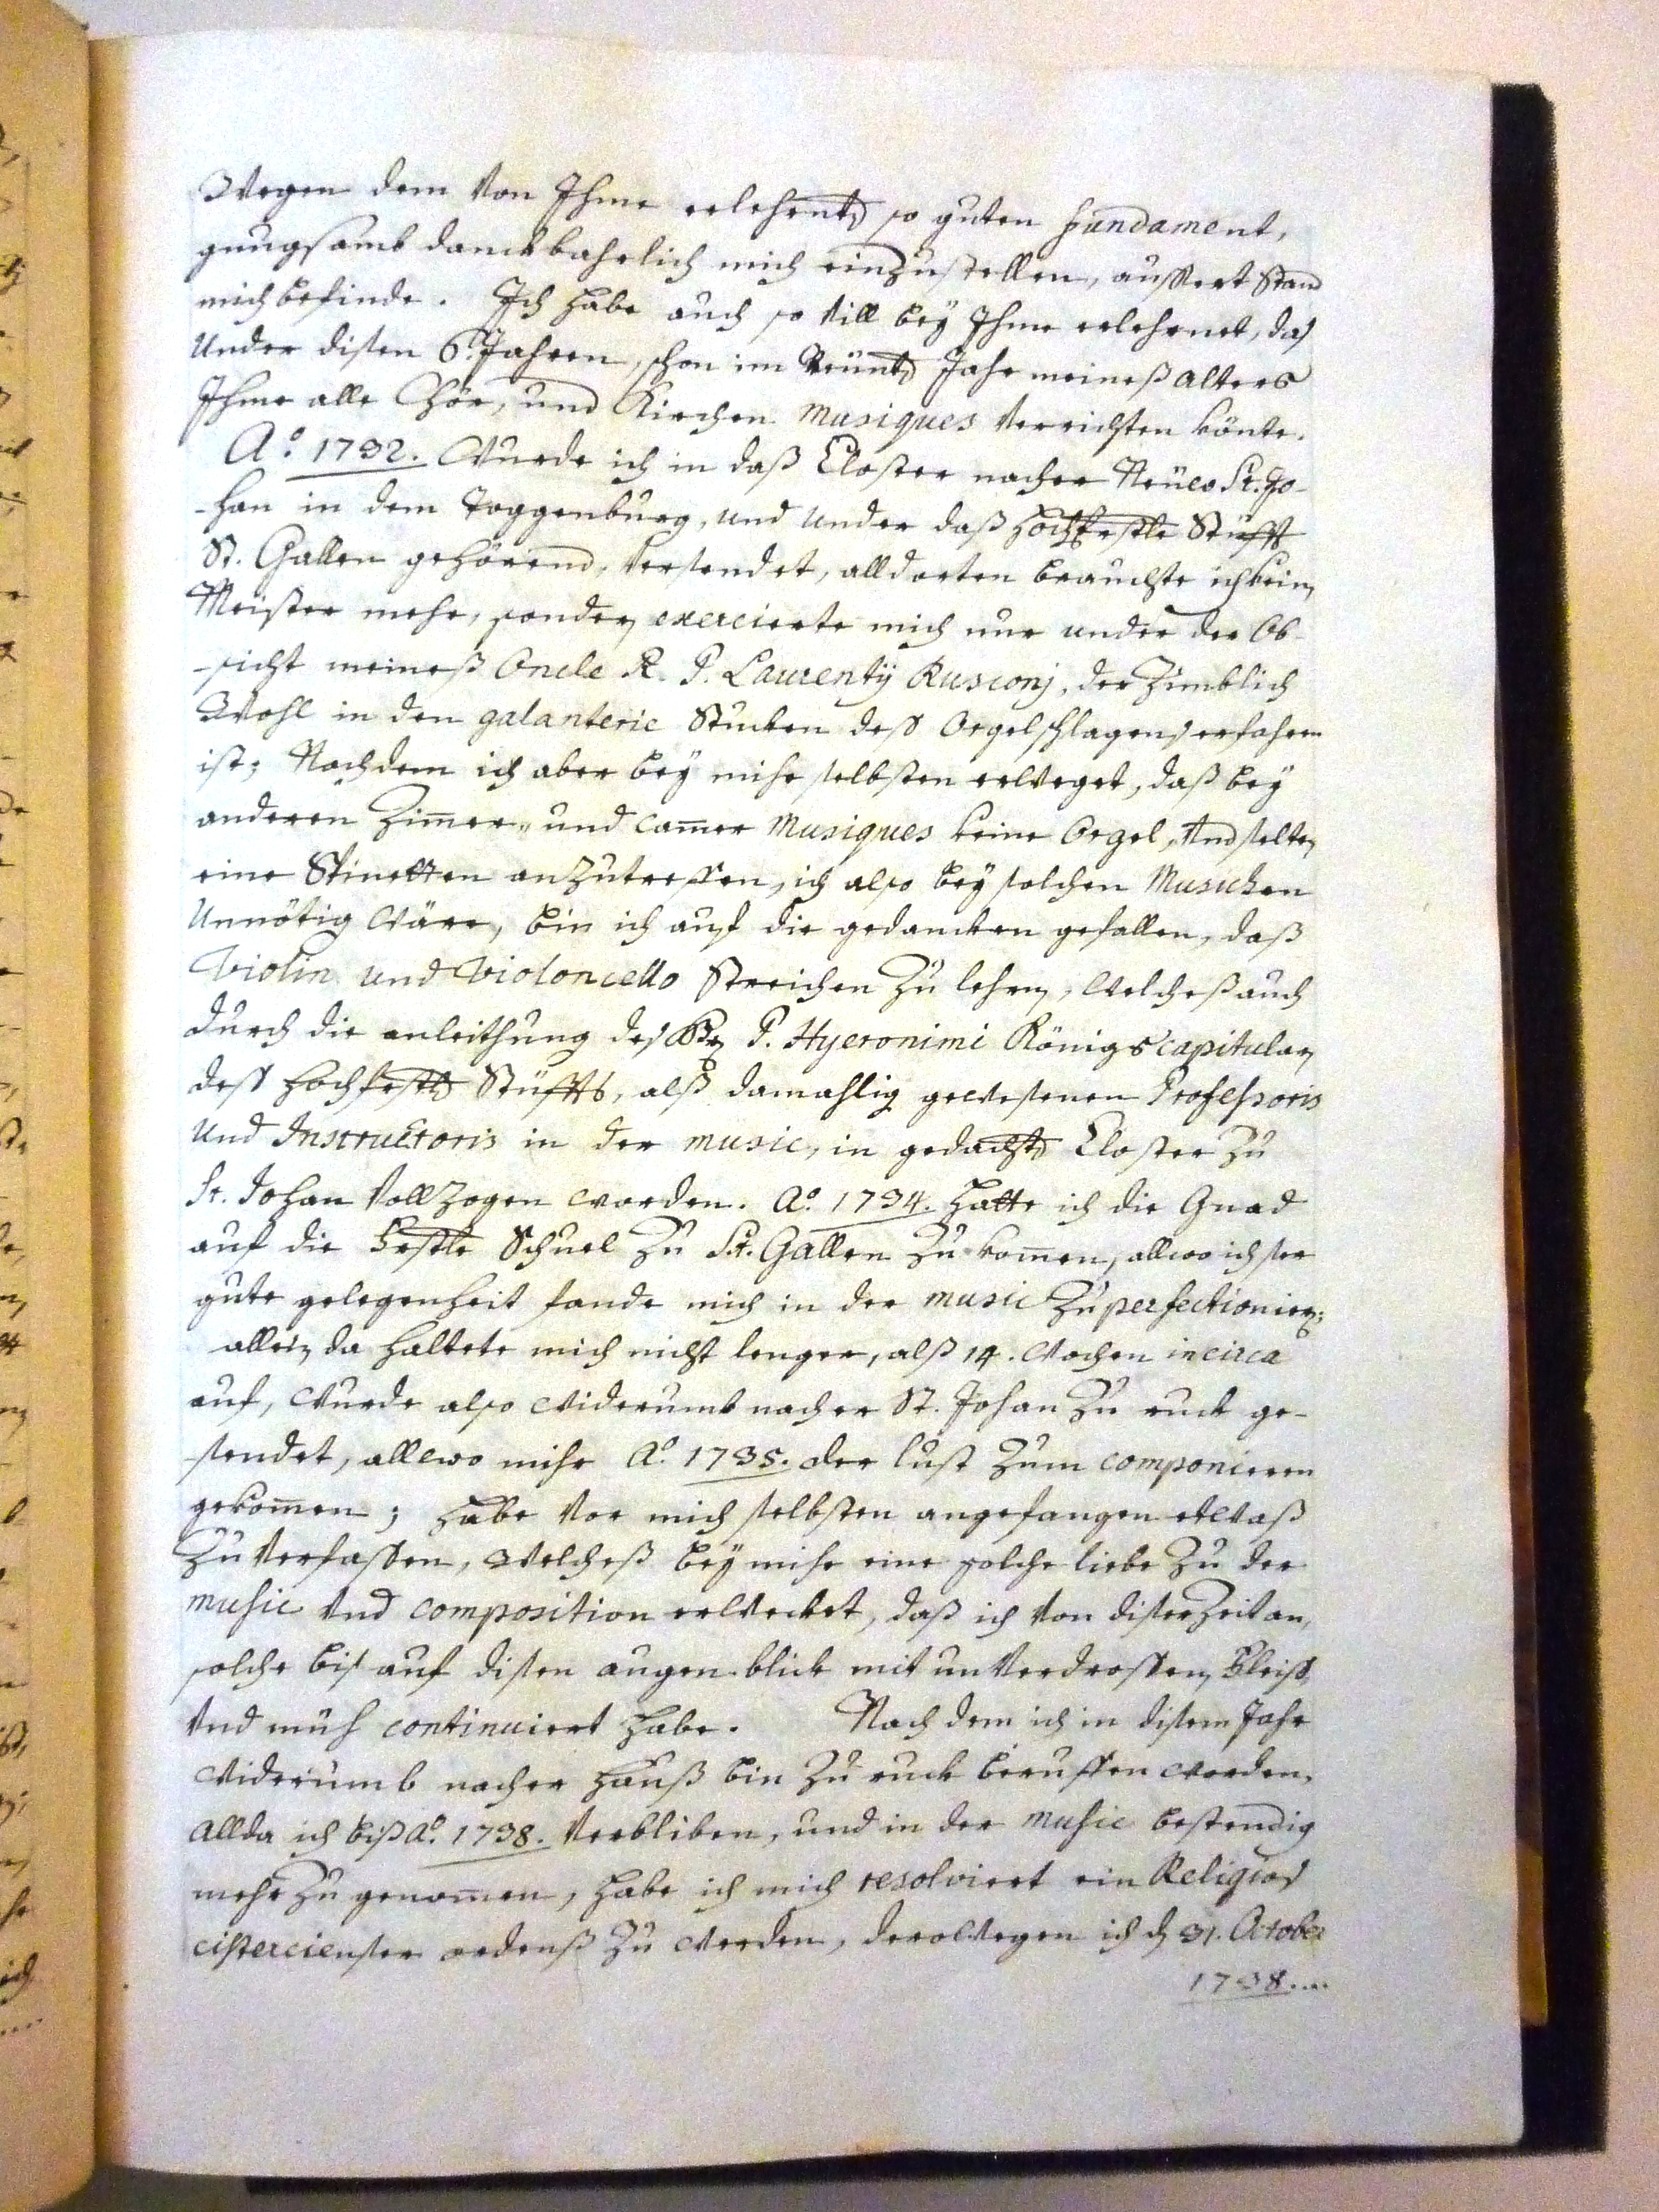 Wegen dem von Ihme erlehrnt, so guten fundament,
gnugsamb danckbahrlich mich einzustellen, aussert Stand
mich befinde. Ich habe auch so vill bey Ihme erlehrnet, das
Under disen 6. Jahren, schon im Neünt, Jahr meineß alters
Ihme alle Chör, und Kirchen Musiques verrichten könte.
Aº. 1732. Wurde ich in daß Closter nacher Neües St. Jo-
-han in dem Toggenburg, und under daß hochfrstle Stüfft
St. Gallen gehörend, versendet, alldorten brauchte ich kein
Meister mehr, sonder exercierte mich nur under der Ob-
-sicht meineß Oncle R. P. Laurentij Rusconj, der Zimblich
Wohl in den galanterie Stucken dess Orgelschlagens erfahren
ist; Nachdem ich aber bey mihr selbsten erweget, daß bey
anderen Zimer„ und Camer Musiques keine Orgel, und selten
eine Stinetten anzutreffen, ich also bey solchen Musicken
Unnötig wäre, bin ich auf die gedancken gefallen, daß
Violin und Violoncello streichen Zu lehrn, welcheß auch
durch die anleithung des P. Hyeronimi Königs capitularn
dess hochfrstl Stüffts, alß damahlig gewesenen Professoris
und Instructoris in der music, in gedacht Closter Zu
St. Johan vollzogen worden. Aº. 1734. hatte ich die Gnad
auf die frstle Schuel Zu St. Gallen Zu komen, allwo ich ser
gute gelegenheit fande mich in der music Zu perfectioniern;
allein da haltete mich nicht lenger, alß 14. Wochen in circa
auf, wurde also widerumb nacher St. Johan Zu ruck ge-
-sendet, allwo mihr Aº. 1735. der lust Zum componieren
gekomen; habe vor mich selbsten angefangen etwaß
Zu verfassen, welcheß bey mihr eine solche liebe Zu der
music und composition erwecket, daß ich von diser Zeit an,
solche bis auf disen augenblick mit unverdrossen fleiss,
und müh continuiert habe. Nach dem ich in disem Jahr
widerumb nacher hauß bin Zu ruck beruffen worden,
allda ich biß Aº. 1738. verbliben, und in der music bestendig
mehr Zu genomen, habe ich mich resolviert ein Religios
cistercienser ordenß Zu werden, derowegen ich d 31. October
1738....